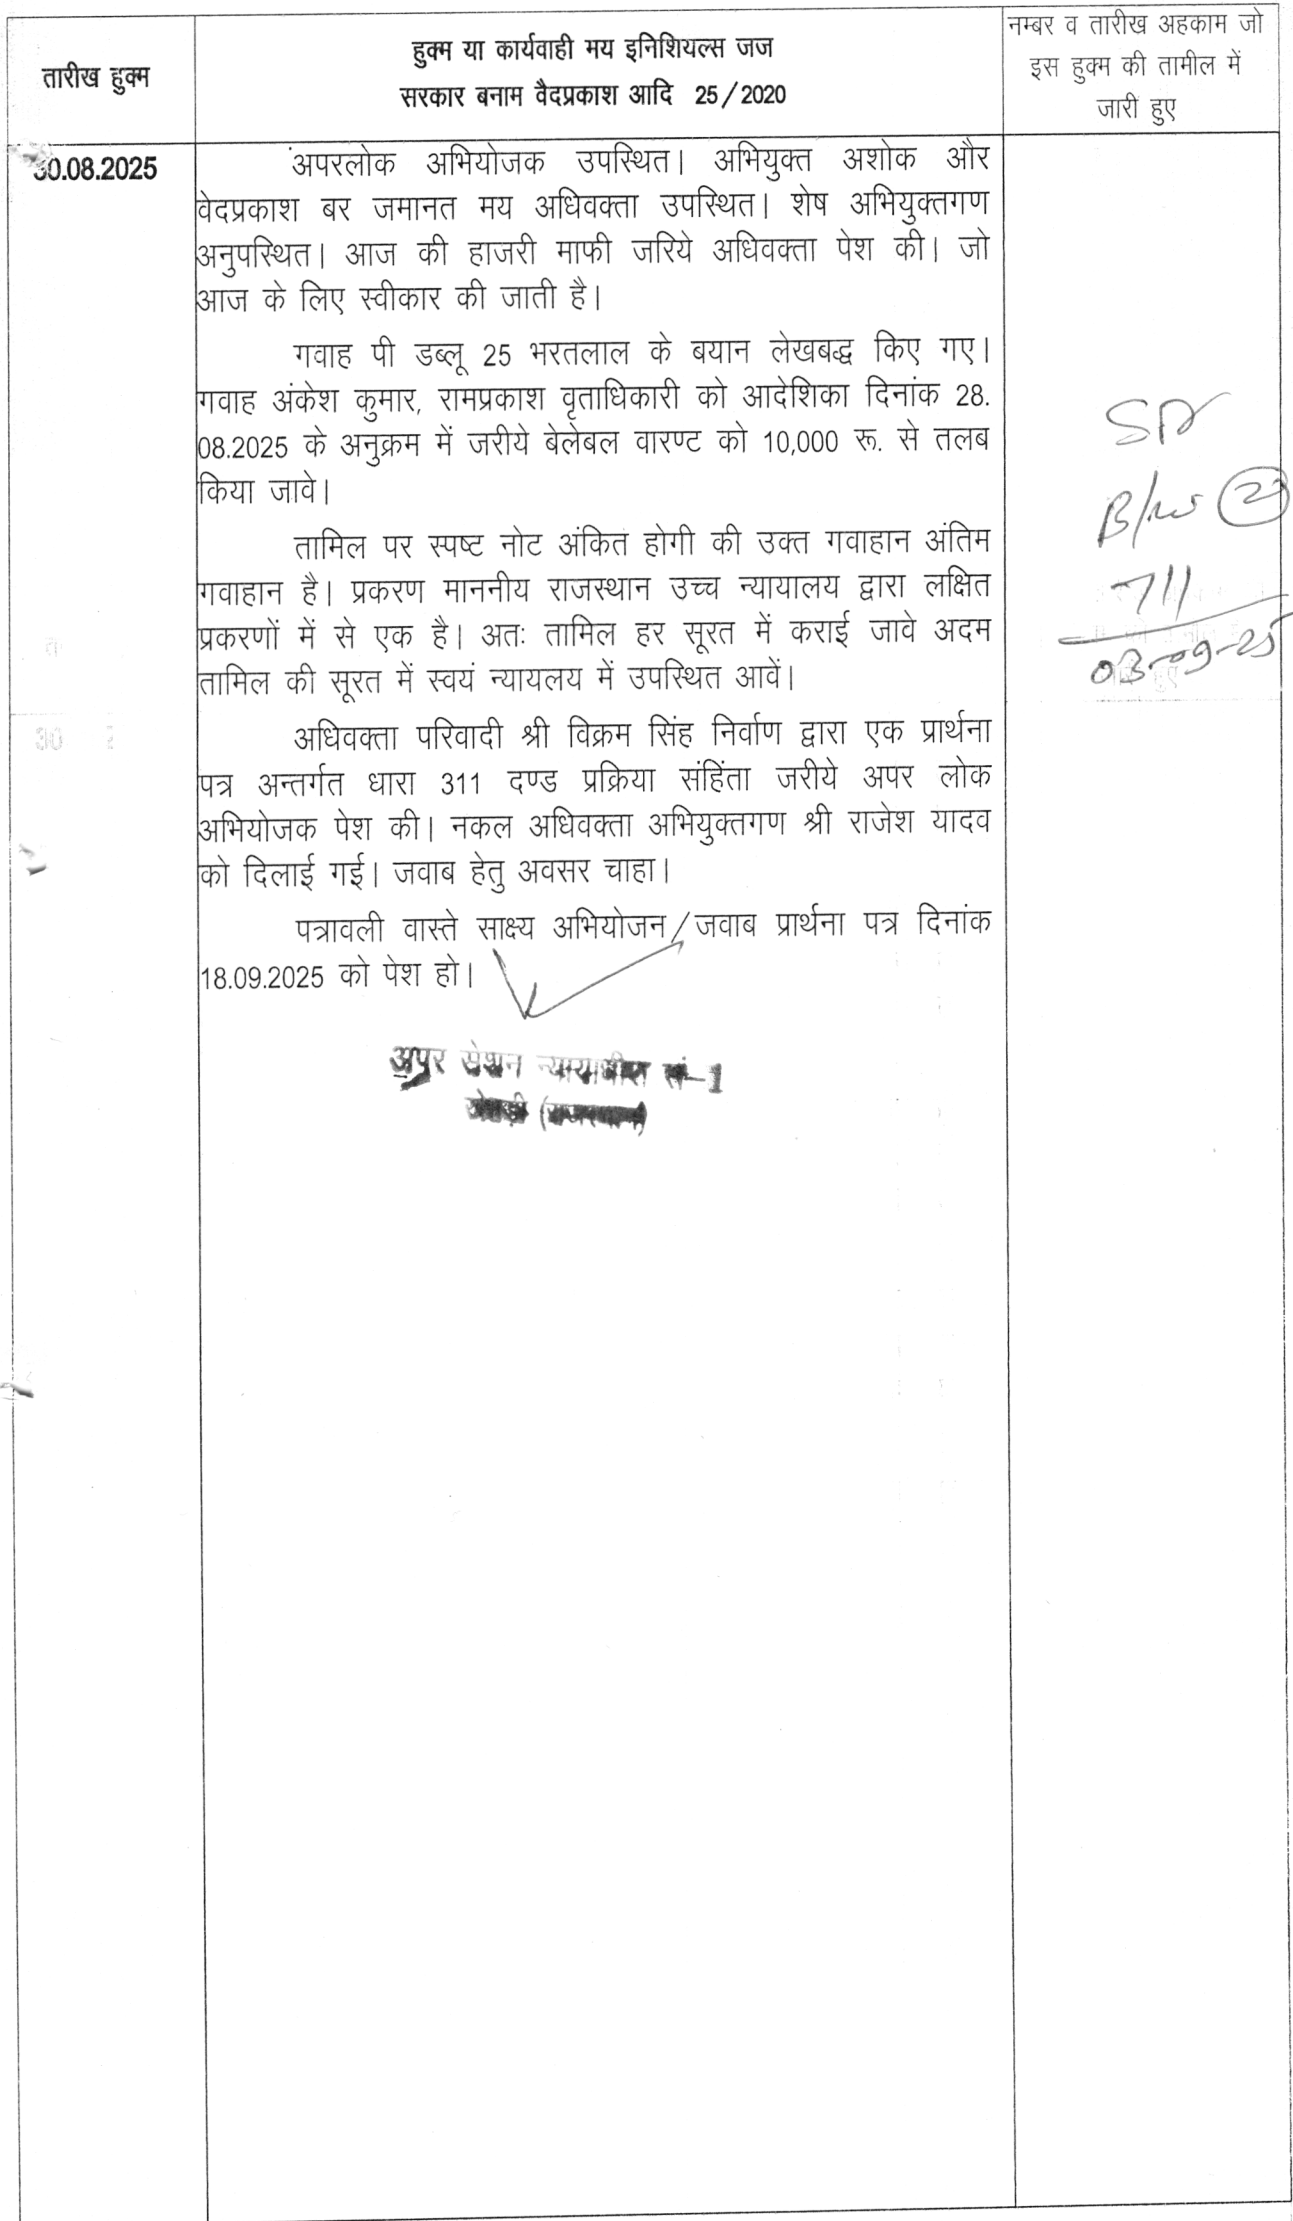 तारीख हुक्म
हुक्म या कार्यवाही मय इनिशियल्स जज
सरकार बनाम वैदप्रकाश आदि 25/2020
नम्बर व तारीख अहकाम जो
इस हुक्म की तामील में
जारी हुए
30.08.2025
अपरलोक अभियोजक उपस्थित। अभियुक्त अशोक और
वेदप्रकाश बर जमानत मय अधिवक्ता उपस्थित। शेष अभियुक्तगण
अनुपस्थित। आज की हाजरी माफी जरिये अधिवक्ता पेश की। जो
आज के लिए स्वीकार की जाती है।
गवाह पी डब्लू 25 भरतलाल के बयान लेखबद्ध किए गए।
गवाह अंकेश कुमार, रामप्रकाश वृताधिकारी को आदेशिका दिनांक 28.
08.2025 के अनुक्रम में जरीये बेलेबल वारण्ट को 10,000 रू. से तलब
किया जावे।
तामिल पर स्पष्ट नोट अंकित होगी की उक्त गवाहान अंतिम
गवाहान है। प्रकरण माननीय राजस्थान उच्च न्यायालय द्वारा लक्षित
प्रकरणों में से एक है। अतः तामिल हर सूरत में कराई जावे अदम
तामिल की सूरत में स्वयं न्यायलय में उपस्थित आवें।
अधिवक्ता परिवादी श्री विक्रम सिंह निर्वाण द्वारा एक प्रार्थना
पत्र अन्तर्गत धारा 311 दण्ड प्रक्रिया संहिंता जरीये अपर लोक
अभियोजक पेश की। नकल अधिवक्ता अभियुक्तगण श्री राजेश यादव
को दिलाई गई। जवाब हेतु अवसर चाहा।
पत्रावली वास्ते साक्ष्य अभियोजन/जवाब प्रार्थना पत्र दिनांक
18.09.2025 को पेश हो।
अपर सेशन न्यायाधीश सं-1
711
03-09-25